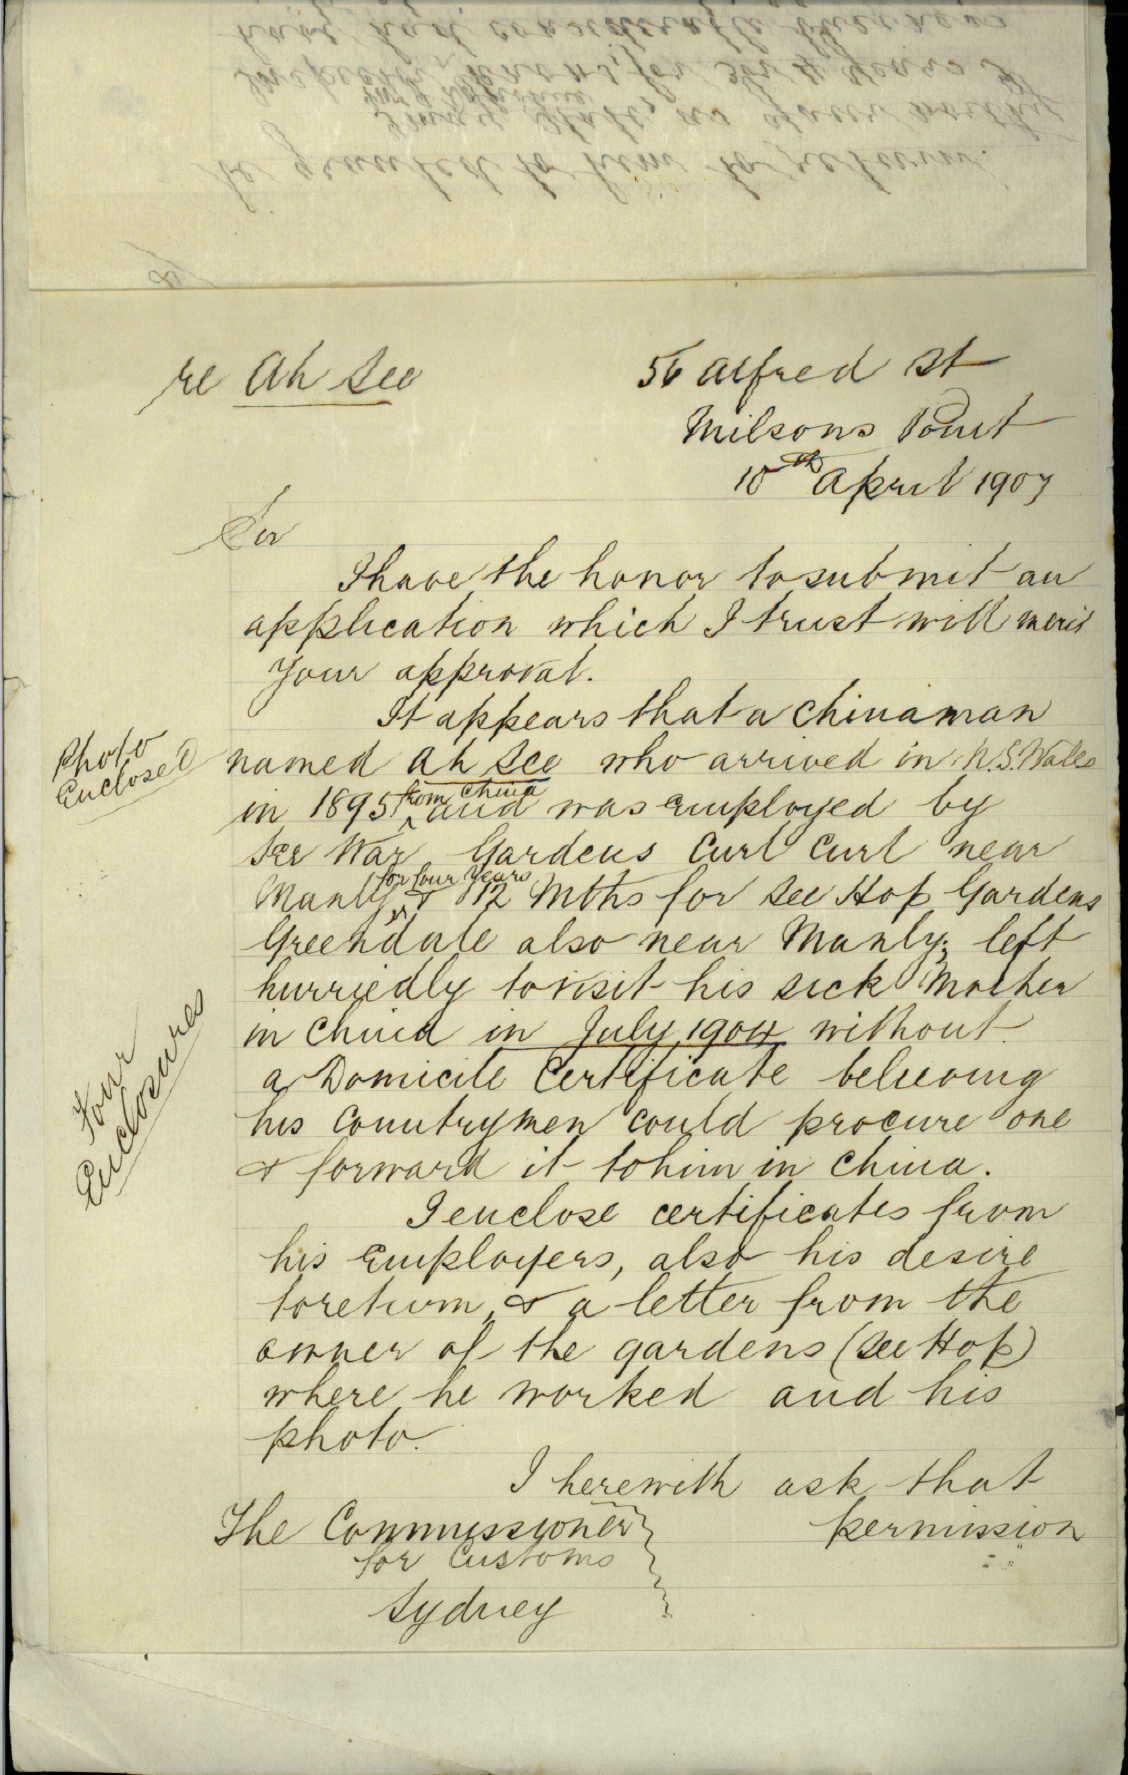 be granted to him to return.
re Ah See
56 Alfred St
Milsons Point
10th April 1907
Sir
I have the honor to submit an
application which I trust will merit
Your approval.
It appears that a Chinaman
Photo
Enclosed
named Ah See who arrived in N.S. Wales
in 1895 from China and was Employed by
See War Gardens Curl Curl near
Manly for four Years & 12 Mths for See Hop Gardens
Greendale also near Manly; left
hurriedly to visit his sick Mother
in China in July 1904 without
a Domicile Certificate believing
his Countrymen could procure one
& forward it to him in China.
Four
Enclosures
I enclose certificates from
his Employers, also his desire
to return, & a letter from the
owner of the gardens (See Hop)
where he worked and his
photo.
I herewith ask that
permission
The Commissioner
for Customs
Sydney